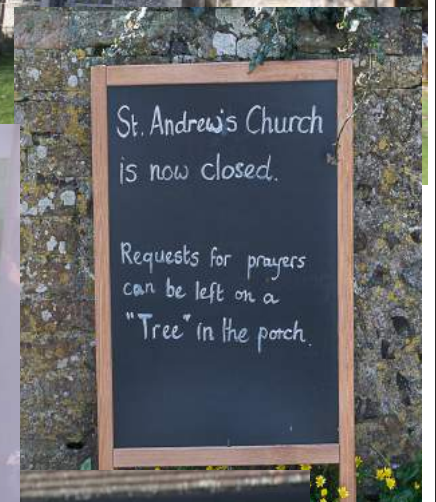 St. Andrew's Church
is now closed.
Requests for prayers
can be left on a
"Tree" in the porch.